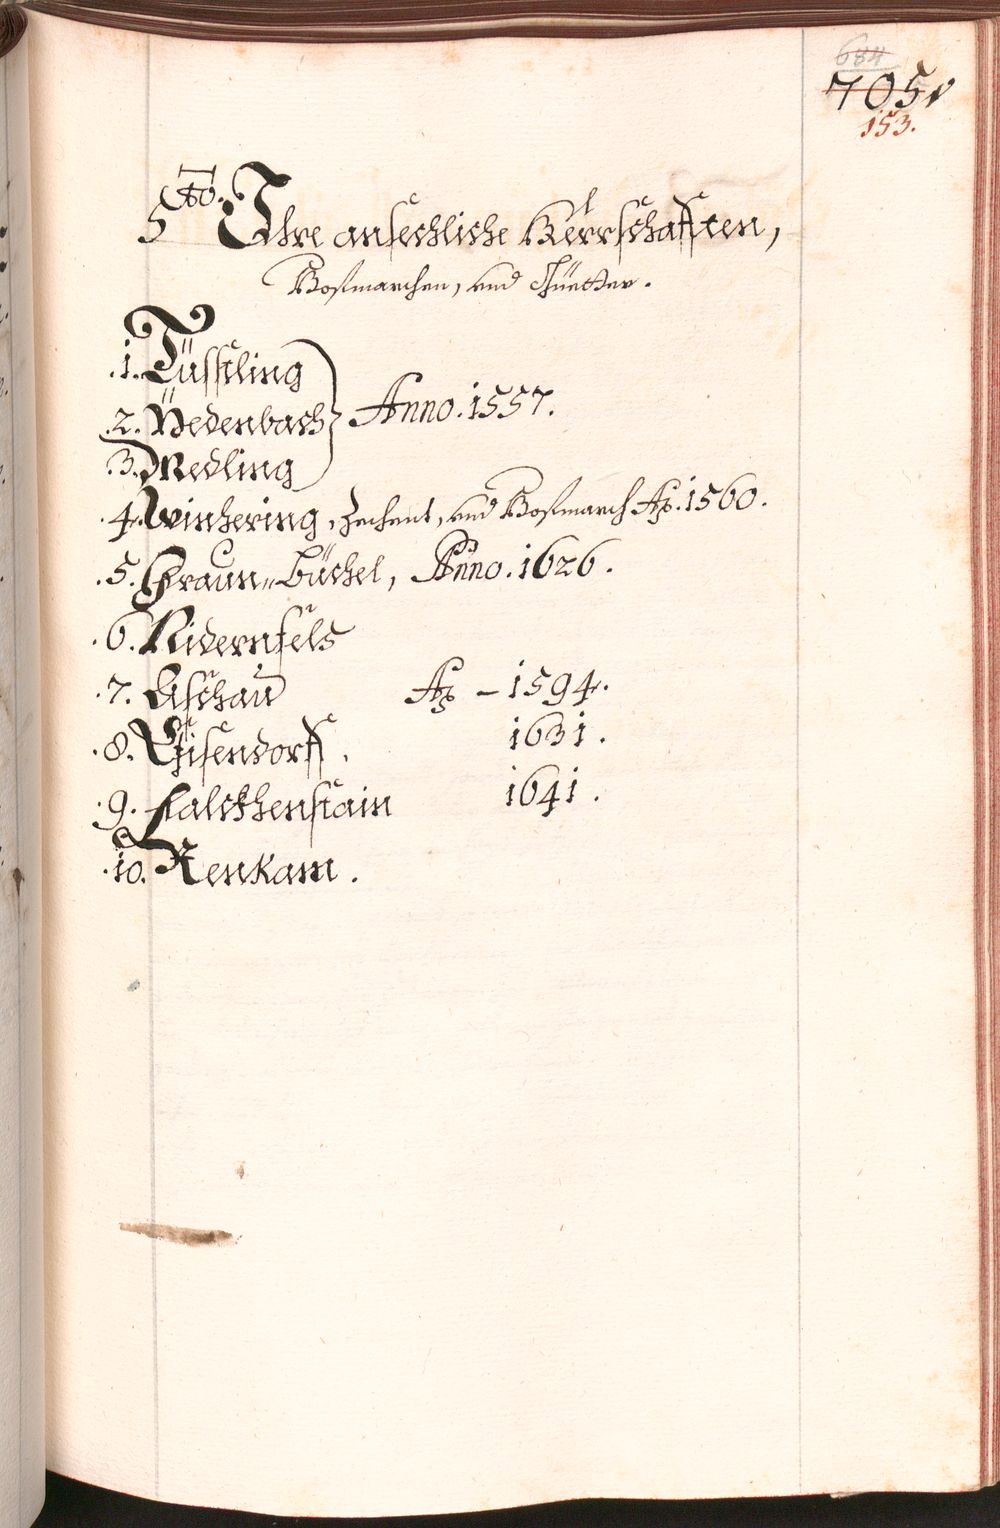 684
705v
153.
5to. Ihre ansechliche Herrschafften,
Hofmarchen, und Guetter.
.1. Tüssling
.2. Nedenbach } Anno. 1557.
.3. Medling
.4. Winhering, Zechent, und Hofmarch Ao. 1560.
.5. Fraun=Büchel, Anno. 1626.
.6. Nidernfels
.7. Aschau Ao – 1594.
.8. Eisendorff. 1631.
.9. Falckhenstain 1641.
.10. Renkam.